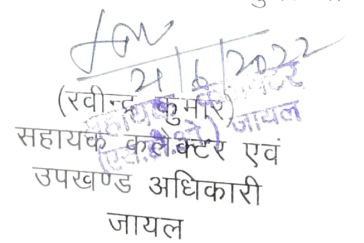 21/6/2022
(रवीन्द्र कुमार)
सहायक कलेक्टर एवं
उपखण्ड अधिकारी
जायल
जायल